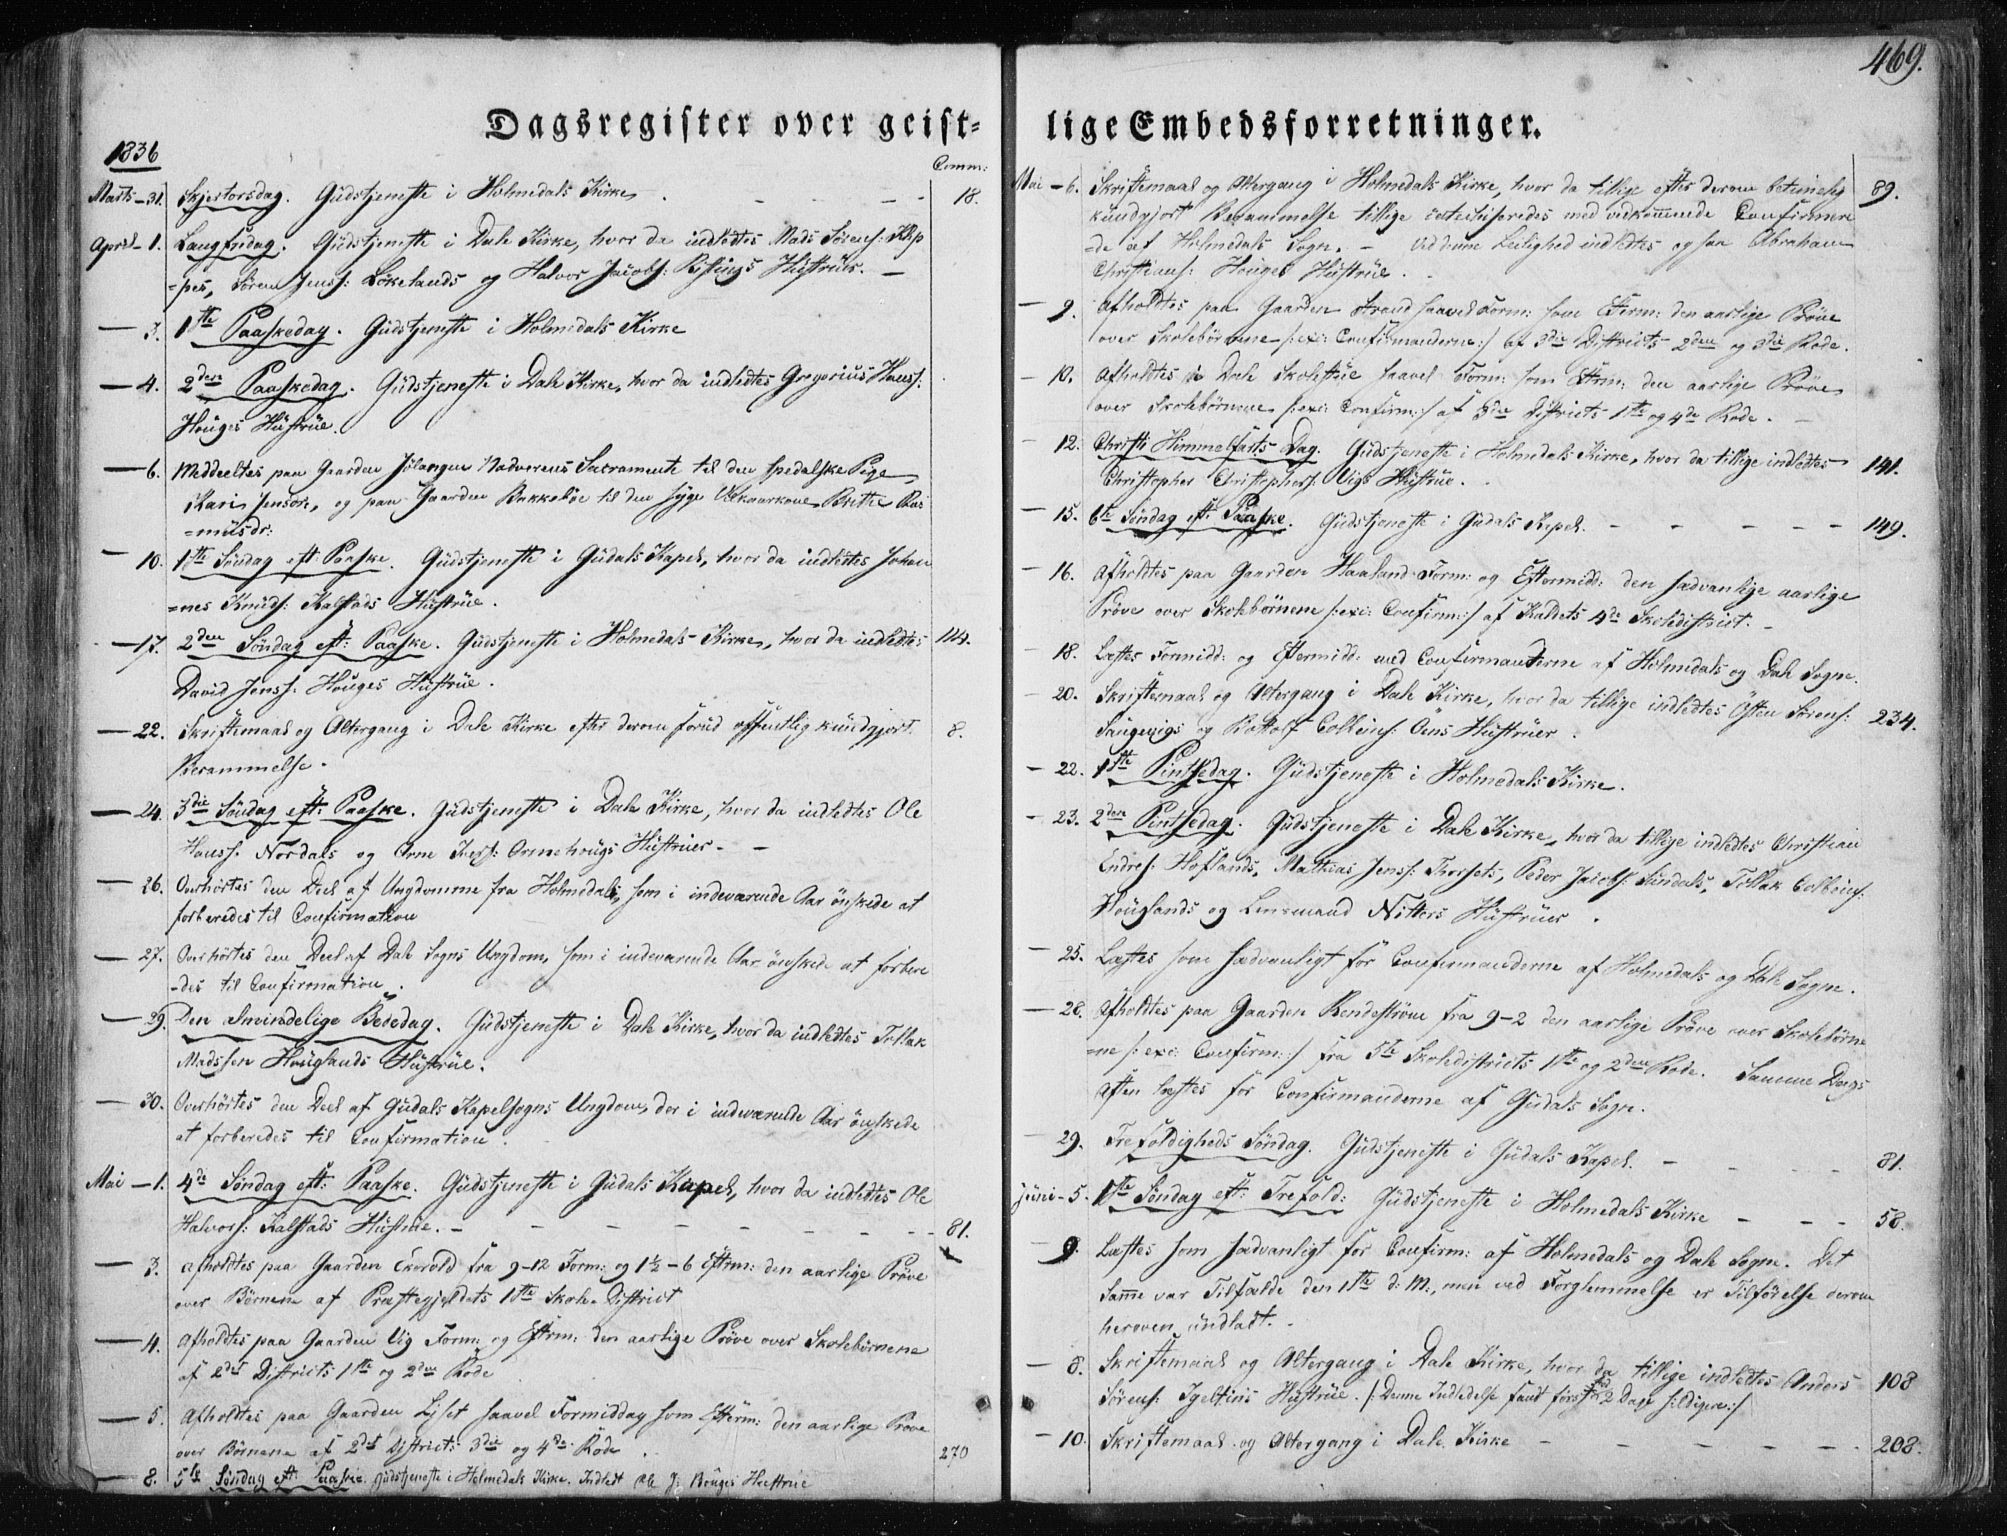 469.
Dagsregister over geist=
lige Embedsforretninger.
1836
Comm:
Marts – 31. Skjertorsdag. Gudstjeneste i Holmedals Kirke . – – – 18.
April – 1. Langfridag. Gudstjeneste i Dale Kirke, hvor da indledtes Mads Sørens: Klip
=pes, Søren Jenss: Lökelands og Halvor Jacobs: Hustrüer. –
– 3. 1ste Paaskedag. Gudstjeneste i Holmedals Kirke
– 4. 2den Paaskedag. Gudstjeneste i Dale Kirke, hvor da indledtes Gregorius Hans:
Houges Hustrüe.
– 6. Meddeeltes paa Gaarden Nadverens Sacramente til den spedalske Pige
Kari Jensdr., og paa Gaarden til den syge Brithe Ras
=müsdr:
– 10. 1ste Söndag eft: Paaske. Gudstjeneste i Gudals Kapel, hvor da indledtes Johan
=nes Knuds: Kalstads Hustrüe.
– 17. 2den Söndag eft: Paaske. Gudstjeneste i Holmedals Kirke, hvor da indledtes 144.
David Jenss: Houges Hustrüe.
– 22. Skriftemaal og Altergang i Dale Kirke efter derom forud offentlig kundgjort 8.
Berammelse.
– 24. 3die Söndag eft: Paaske. Gudstjeneste i Dale Kirke, hvor da indledtes Ole
Hanss. Nordals og Arne Hustrüer – –
– 26. Overhörtes den Deel af Ungdommen fra Holmedal, som i indeværende Aar önskede at
forberedes til Confirmation
– 27. Overhörtes den Deel af Dale Sogns Ungdom, som i indeværende Aar önskede at forbere
=des til Confirmation.
– 29. Den almindelige Bededag. Gudstjeneste i Dale Kirke, hvor da indledtes Tollak
Madssen Houglands Hustrüe.
– 30. Overhörtes den Deel af Gudals Kapelsogns Ungdom, der i indeværende Aar önskede
at forberedes til Confirmation.
Mai – 1. 4de Söndag eft: Paaske. Gudstjeneste i Gudals Kapel, hvor da indledtes Ole
Halvors: Kalstads Hustrue. – – – – – – – 81.
– 3. Afholdtes paa Gaarden fra 9–12 Form: og 1½–6 Eftrm: den aarlige Pröve
over Börnene af Præstegjeldets 1ste Skole-District
– 4. Afholdtes paa Gaarden Vig Form: og Eftrm: den aarlige Pröve over Skolebörnene
af 2det Districts 1ste og 2den Rode
– 5. Afholdtes paa Gaarden saavel Formiddag som Efterm: den aarlige Pröve
over Börnene af 2det Districts 3die og 4de Rode . 270
– 8. 5te Söndag eft: Paaske. Gudstjeneste i Holmedals Kirke. Indledt Ole J: Houges Hustrüe
Mai – 6. Skriftemaal og Altergang i Holmedals Kirke, hvor da tillige efter derom betimelig 89.
kundgjort Berammelse tillige med vedkommende Confirmere
=de af Holmedals Sogn. – Ved denne Leilighed indledtes ogsaa Abraham
Christians: Houges Hustrüe.
– 9. Afholdtes paa Gaarden Strand saavel Form: som Efterm: den aarlige Pröve
over Skolebörnene /:exc: Confirmanderne:/ af 3die Districts 2den og 3die Rode.
– 10. Afholdtes i Dale Skolestüe saavel Form: som Eftrm: den aarlige Pröve
over Skolebörnene /:exc: Confirm:/ af 3die Districts 1ste og 4de Rode. –
– 12. Christi Himmelfarts-Dag. Gudstjeneste i Holmedals Kirke, hvor da tillige indledtes 141.
Christopher Christophers: Vigs Hustrüe.
– 15. 6te Söndag eft: Paaske. Gudstjeneste i Gudals Kapel. – – – – – 149.
– 16. Afholdtes paa Gaarden Haaland Form: og Eftermidd: den sædvanlige aarlige
Pröve over Skolebörnene /:exc: Confirm:/ af Kaldets 4de Skoledistrict. –
– 18. Læstes Formidd: og Eftermidd: med Confirmanderne af Holmedals og Dale Sogne.
– 20. Skriftemaal og Altergang i Dale Kirke, hvor da tillige indledtes Östen Sörens: 234.
og Hustrüer.
– 22. 1ste Pintsedag. Gudstjeneste i Holmedals Kirke.
– 23. 2den Pintsedag. Gudstjeneste i Dale Kirke, hvor da tillige indledtes Christian
Endres: Hoflands, Mathias Jenss: Thorsets, Peder Jacobs: Sundals, Tollak Colbeins:
Houglands og Lensmand Nitters Hustrüer.
– 25. Læstes som sædvanligt for Confirmanderne af Holmedals og Dale Sogne.
– 28. Afholdtes paa Gaarden fra 9–2 den aarlige Pröve over Skolebörne
=ne /:exc: Confirm:/ fra 5te Skoledistricts 1ste og 2den Rode. Samme Dags
Aften læstes for Confirmanderne af Gudals Sogn.
– 29. Trefoldigheds Söndag. Gudstjeneste i Gudals Kapel. – – – 81.
Juni – 5. 1ste Söndag eft: Trefold: Gudstjeneste i Holmedals Kirke – – – 58.
– 9. Læstes som sædvanligt for Confirm: af Holmedals og Dale Sogne. Det
samme var Tilfælde den 1ste d: M:, men ved Forglemmelse er Tilförelse derom
heroven undladt. –
– 8. Skriftemaal og Altergang i Dale Kirke, hvor da tillige indledtes Anders 108
Sörens: Hustrüe. /:Denne Indledelse fandt först Sted 2 Dage sildigere:/
– 10. Skriftemaal og Altergang i Dale Kirke – – – – – 208.